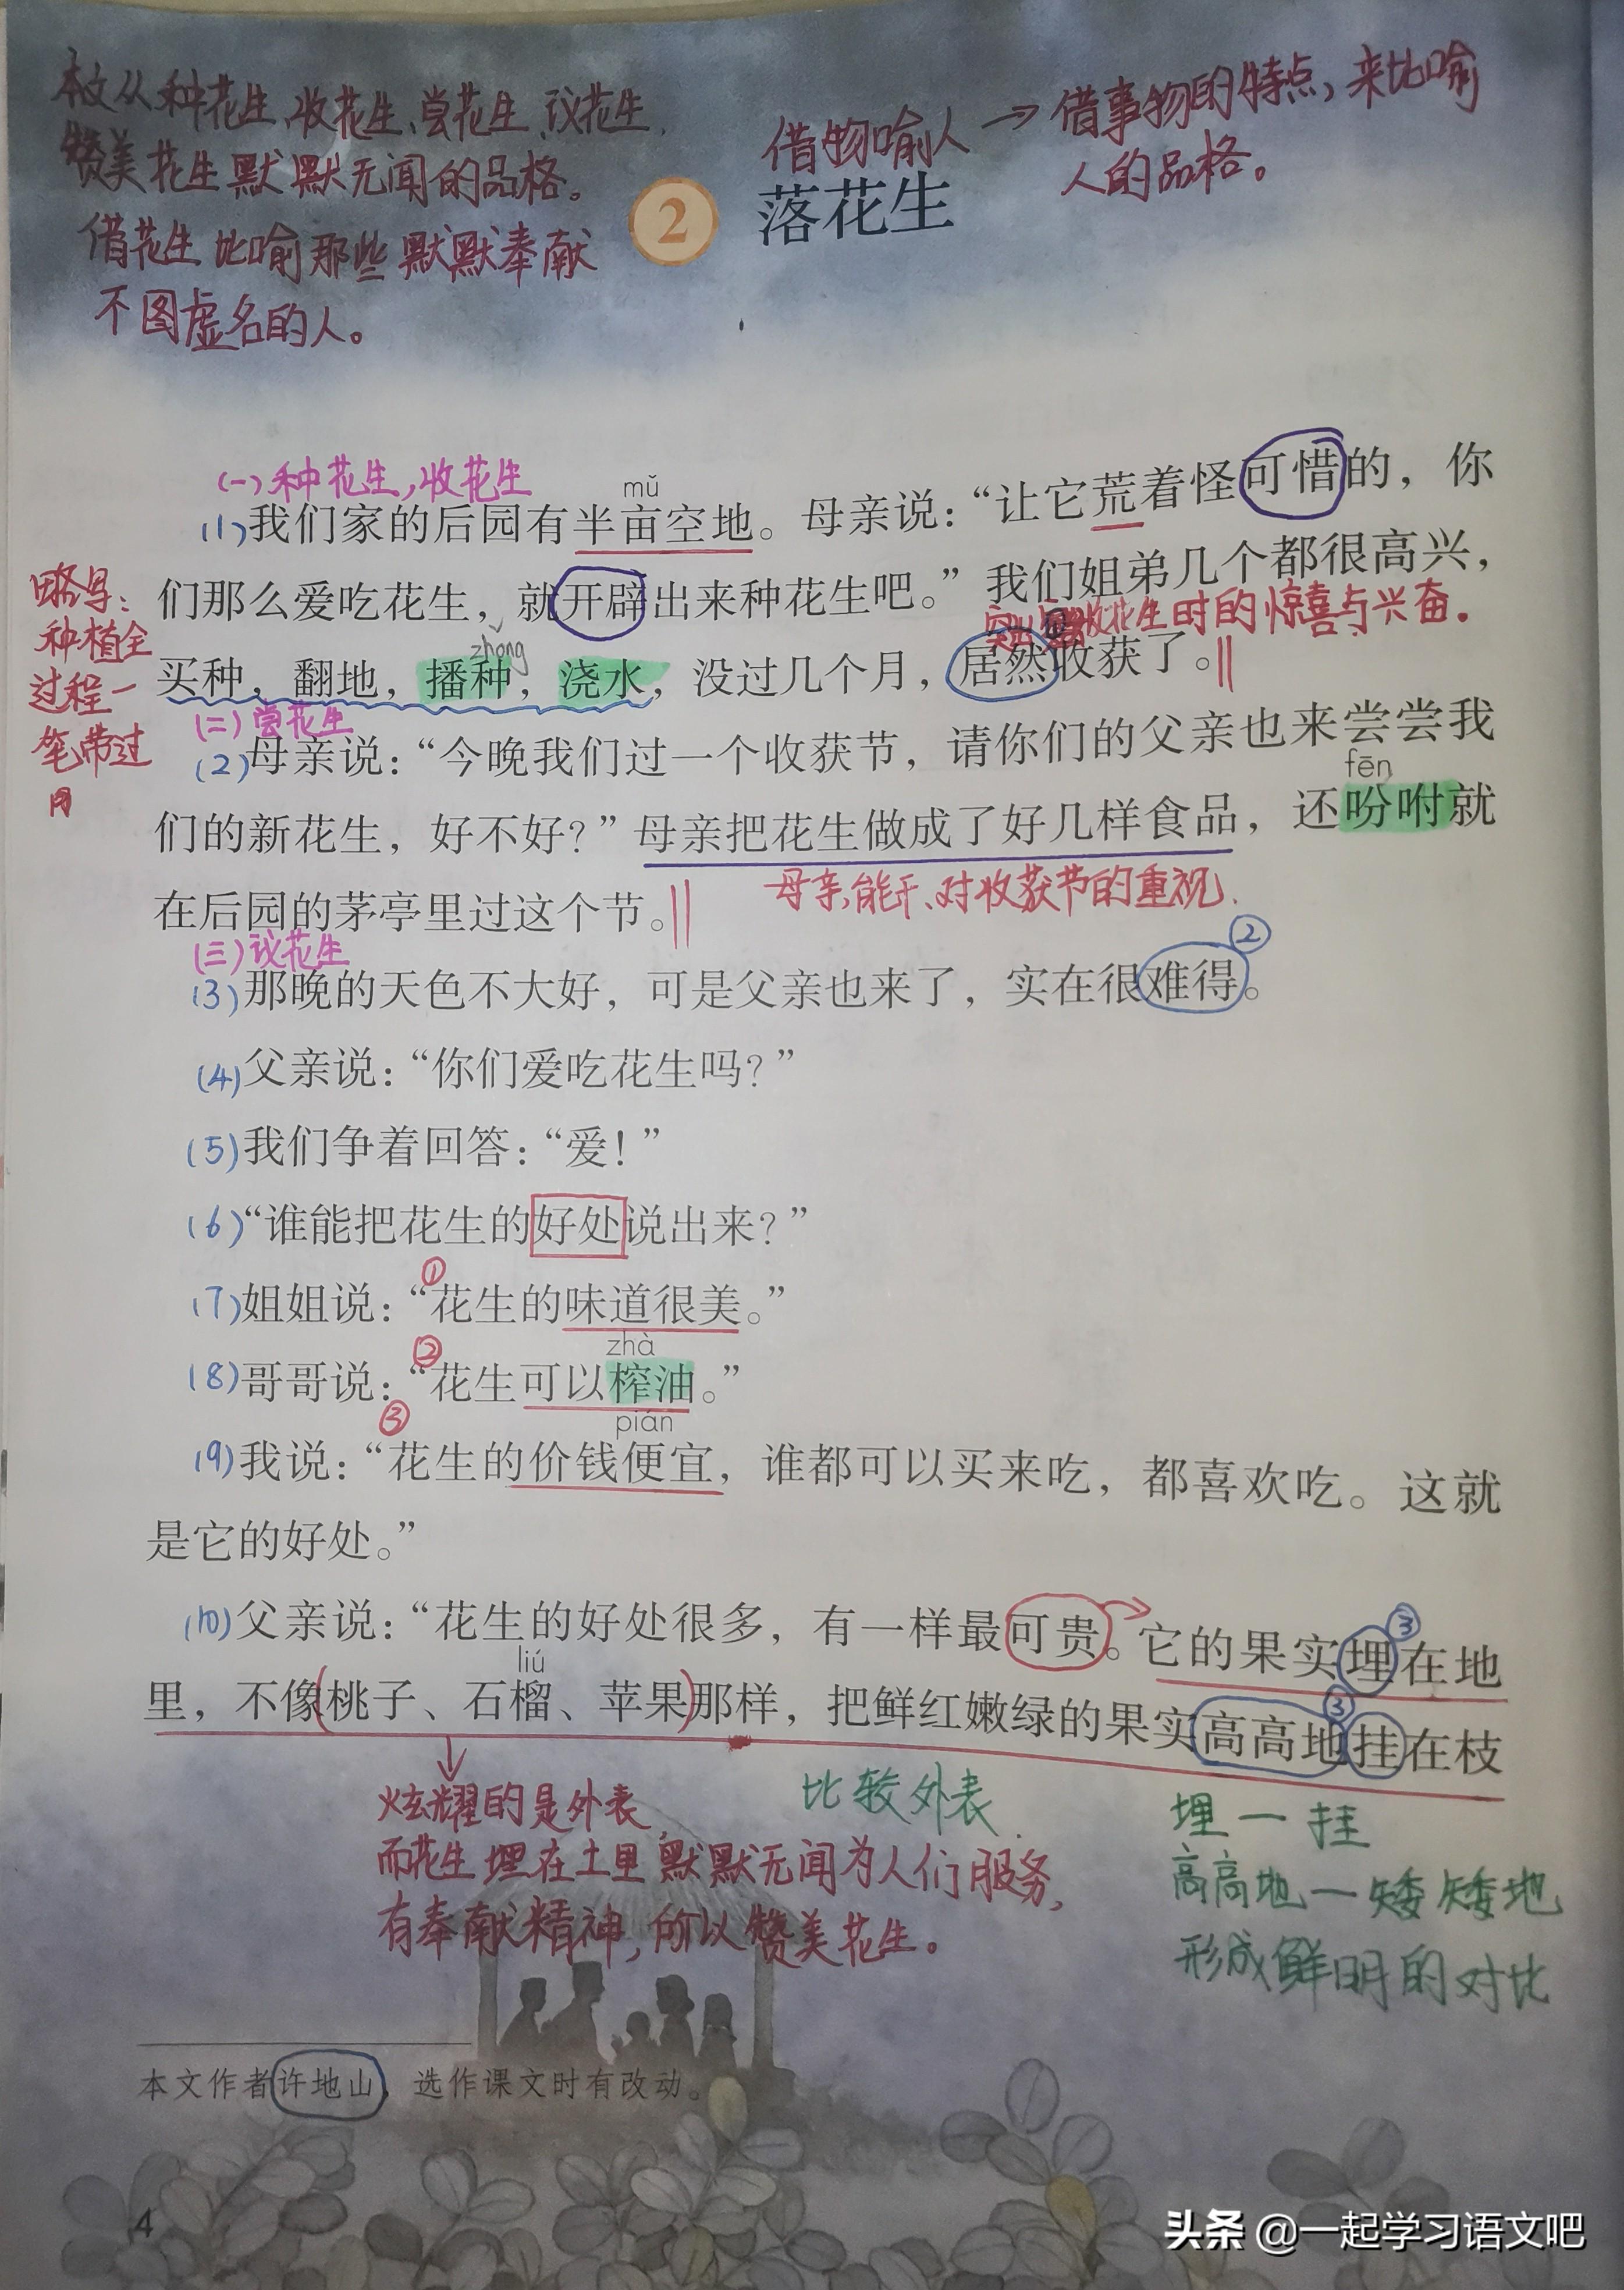 本文从种花生、收花生、尝花生、议花生,
赞美花生默默无闻的品格。
借花生比喻那些默默奉献
不图虚名的人。
借物喻人→借事物的特点,来比喻
人的品格。
2 落花生
(一)种花生,收花生
mǔ
(1)我们家的后园有半亩空地。母亲说:“让它荒着怪可惜的,你
们那么爱吃花生,就开辟出来种花生吧。”我们姐弟几个都很高兴,
收花生时的惊喜与兴奋。
zhǒng
买种,翻地,播种,浇水,没过几个月,居然收获了。
略写:
种植全
过程一
笔带过
(二)尝花生
(2)母亲说:“今晚我们过一个收获节,请你们的父亲也来尝尝我
fēn
们的新花生,好不好?”母亲把花生做成了好几样食品,还吩咐就
在后园的茅亭里过这个节。
母亲能干、对收获节的重视.
(三)议花生
②
(3)那晚的天色不大好,可是父亲也来了,实在很难得。
(4)父亲说:“你们爱吃花生吗?”
(5)我们争着回答:“爱!”
(6)“谁能把花生的好处说出来?”
①
(7)姐姐说:“花生的味道很美。”
② zhà
(8)哥哥说:“花生可以榨油。”
③ pián
(9)我说:“花生的价钱便宜,谁都可以买来吃,都喜欢吃。这就
是它的好处。”
③
(10)父亲说:“花生的好处很多,有一样最可贵。它的果实埋在地
liú ③
里,不像(桃子、石榴、苹果)那样,把鲜红嫩绿的果实高高地挂在枝
炫耀的是外表,
而花生埋在土里默默无闻为人们服务,
有奉献精神,所以赞美花生。
比较外表.
埋一挂
高高地一矮矮地
形成鲜明的对比
本文作者许地山,选作课文时有改动。
4
头条 @一起学习语文吧